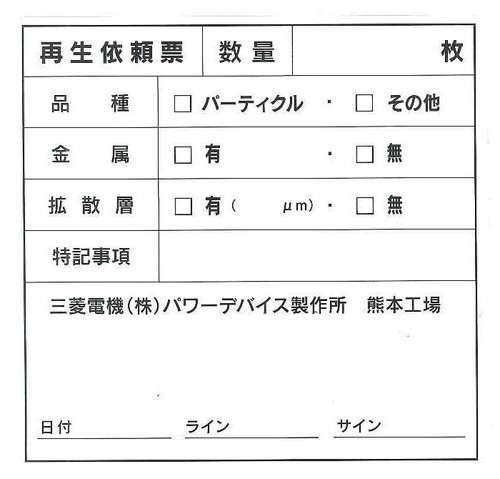 再生依頼票 数量 枚
品種 □ パーティクル ・ □ その他
金属 □ 有 ・ □ 無
拡散層 □ 有( μm)・ □ 無
特記事項
三菱電機(株)パワーデバイス製作所 熊本工場
日付 ライン サイン